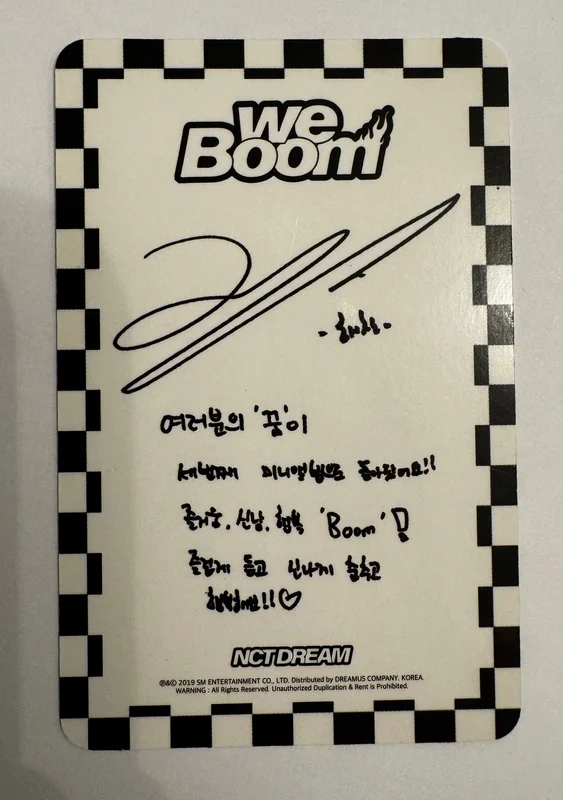 we
Boom
-해찬-
여러분의 '꿈'이
세번째 미니앨범으로 돌아왔어요!!
즐거움, 신남, 행복 'Boom'!
즐겁게 듣고 신나게 춤추고
행복해요!!♡
NCT DREAM
℗&© 2019 SM ENTERTAINMENT CO., LTD. Distributed by DREAMUS COMPANY, KOREA.
WARNING : All Rights Reserved. Unauthorized Duplication & Rent is Prohibited.